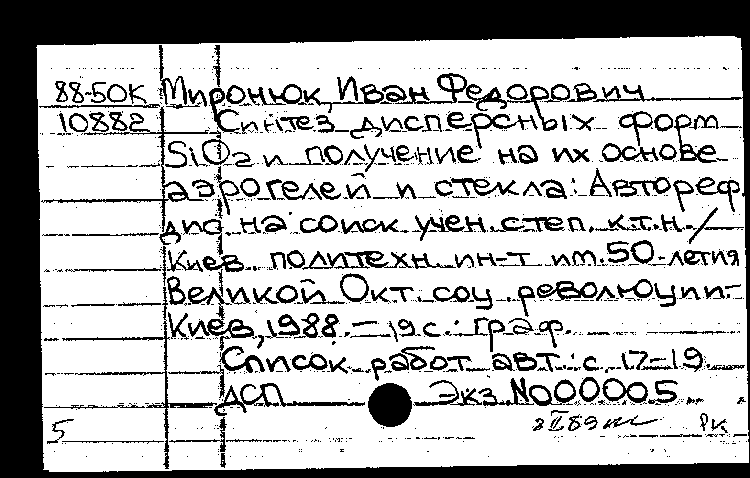 88-50К Миронюк, Иван Федорович
10882 Синтез дисперсных форм
SiO2 и получение на их основе
аэрогелей и стекла: Автореф.
дис. на соиск. учен. степ. к.т.н. /
Киев. политехн. ин-т им. 50-летия
Великой Окт. соц. революции. -
Киев, 1988. - 19 с.: граф.
Список работ авт.: с. 17-19
ДСП Экз. №000005
5 РК